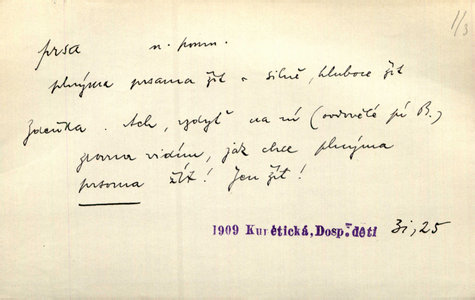 1/3
prsa n. pomn.
plnýma prsama žít = silně, hluboce žít
Zdeňka. Ach, vždyť na ní (ovdovělé pí B.)
zrovna vidím, jak chce plnýma
prsoma žít! Jen žít!
1909 Kurětická, Dosp. děti 3i, 25